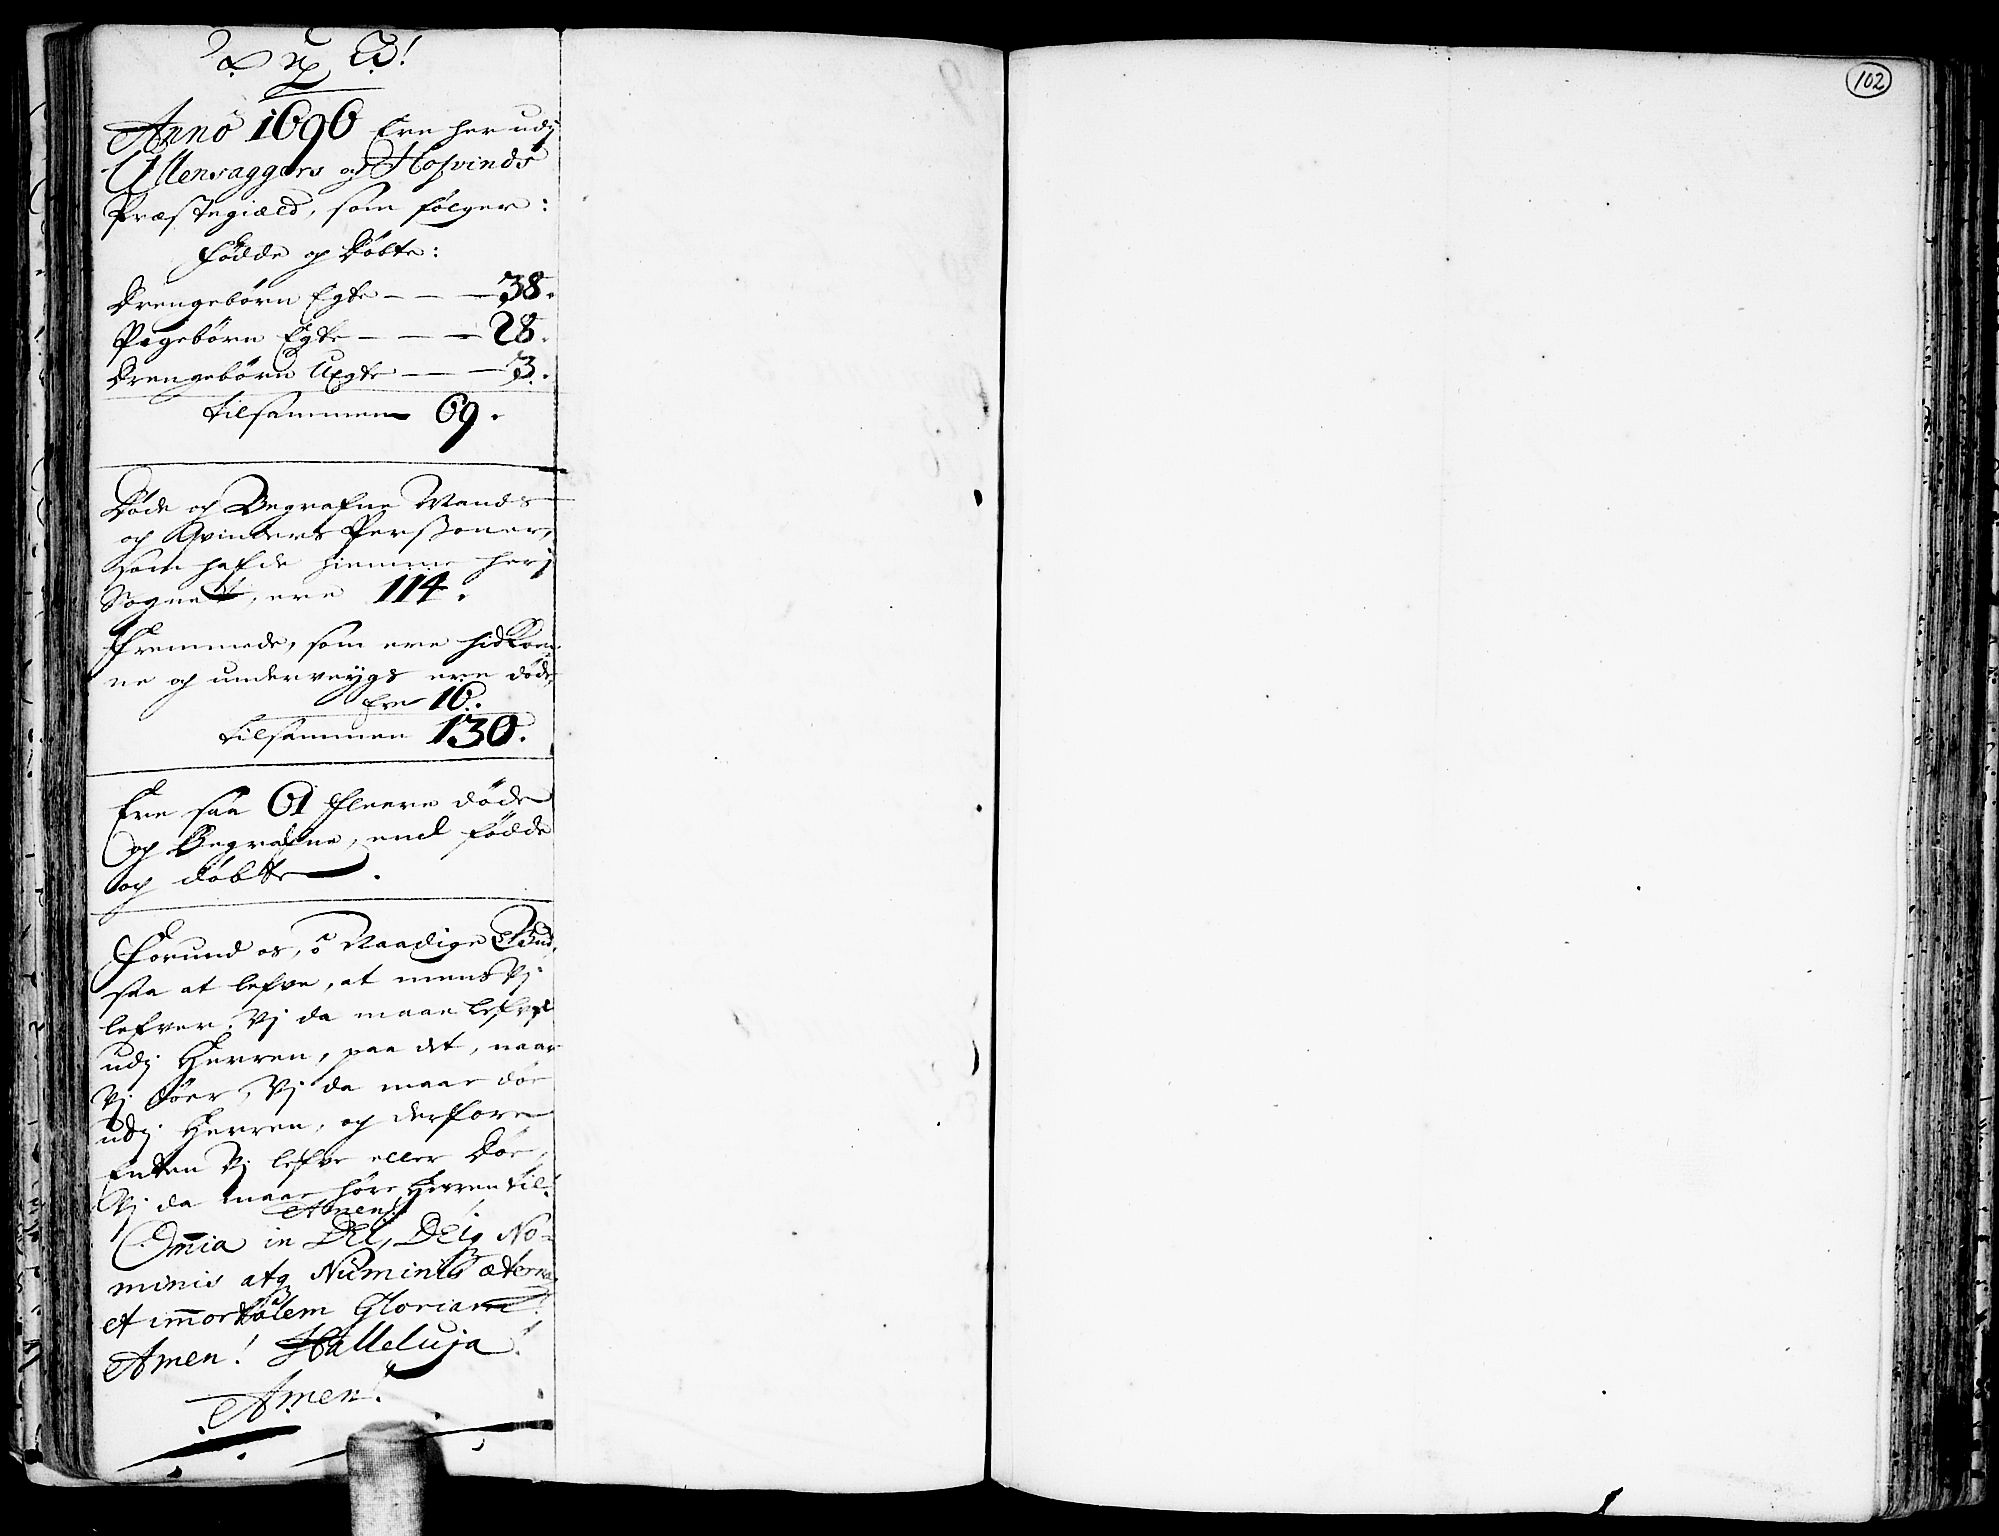 Anno 1696 Ere her udj
Ullensaggers og Hofvinds
Præstegiæld, som følger:
Fødde og Døbte:
Drengebørn Egte – – – 38.
Pigebørn Egte – – – 28.
Drengebørn Uegte – – 3.
tilsammen 69.
Døde og Begrafne Mands
og Qvinders Persßoner,
som hafde hiemme her j
Sognet, ere 114.
Fremmede, som ere hidkom-
ne og underveygs ere døde,
Ere 16.
tilsammen 130.
Ere saa 61 fleere døde
og Begrafne, end fødde
og døbte.
Forund os, ô Naadige Gud,
saa at lefve, at mens Vj
lefver, Vj da maae lefve
udj Herren, paa det, naar
Vj døer, Vj da maae døe
udj Herren, og derfore
Enten Vj lefve eller Døe,
Vj da maae høre Herren til!
Amen!
Om̄ia in DEI, DEIq, No-
minis atq, Numinis æternam
et im̄ortalem Gloriam!
Amen! Halleluja!
Amen!
102